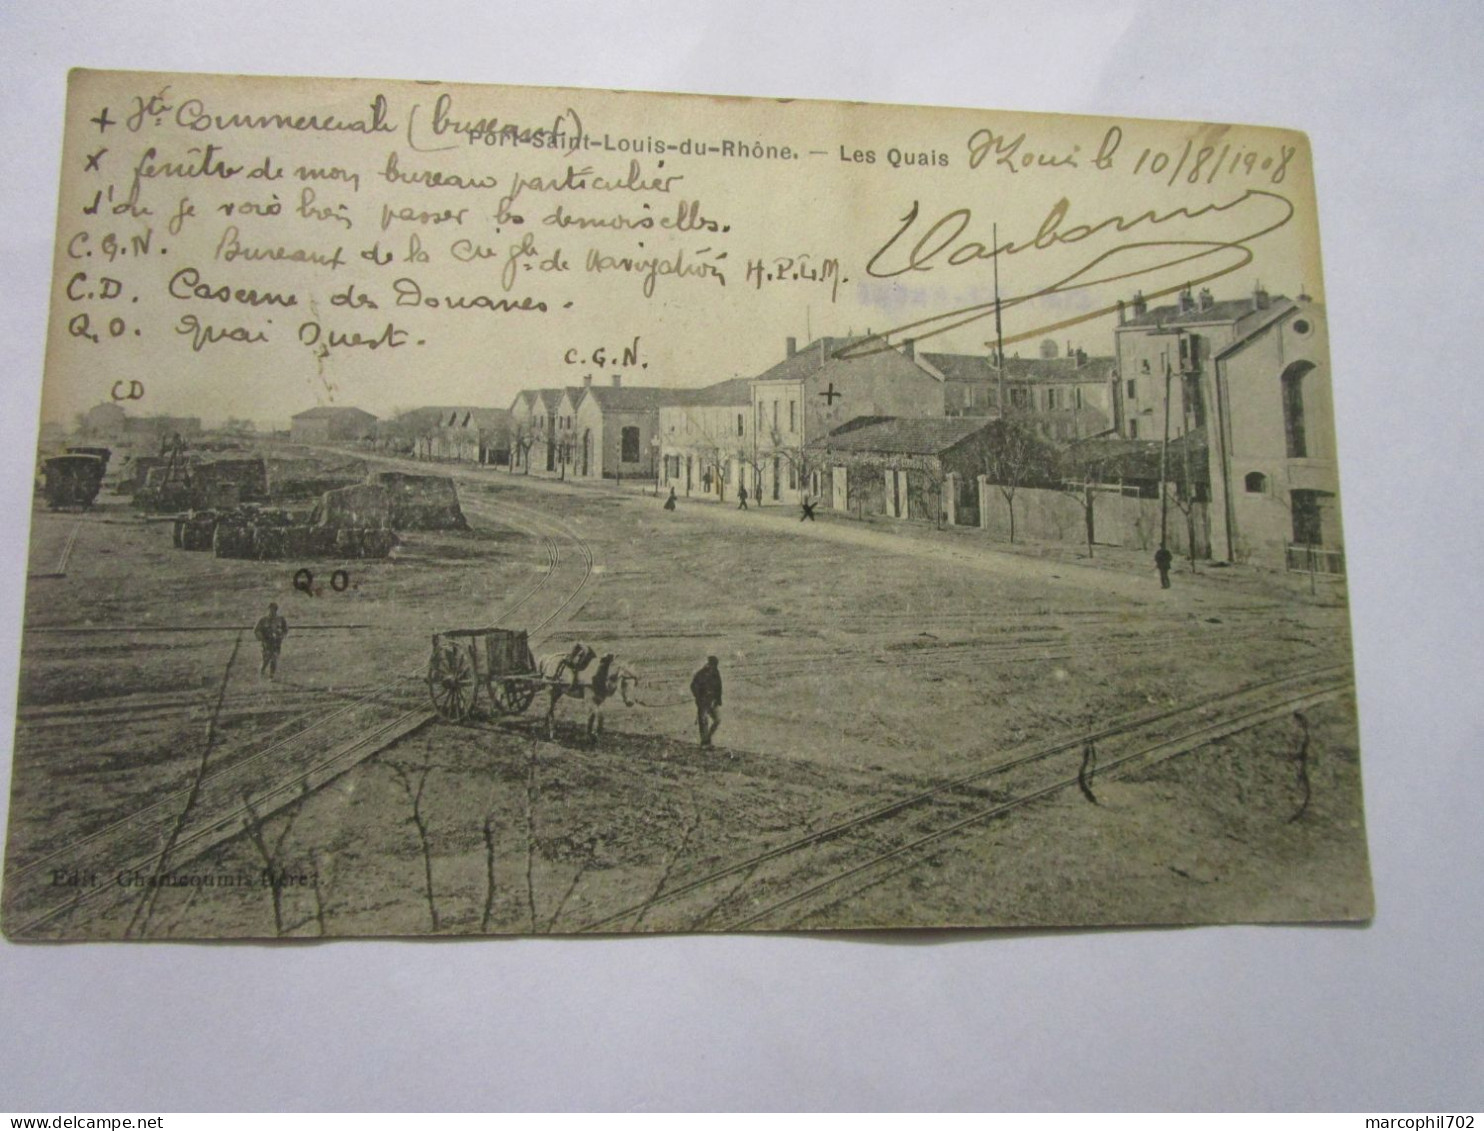 + Sté Commerciale (bureaux)
Port-Saint-Louis-du-Rhône. — Les Quais
St Louis le 10/8/1908
x fenêtre de mon bureau particulier
d'où je vois bien passer les demoiselles.
C.G.N. Bureaux de la Cie Gle de Navigation H.P.L.M.
C.D. Caserne des Douanes.
Q.O. Quai Ouest.
C.G.N.
CD
+
x
Q.O.
Edit. frères
marcophil702